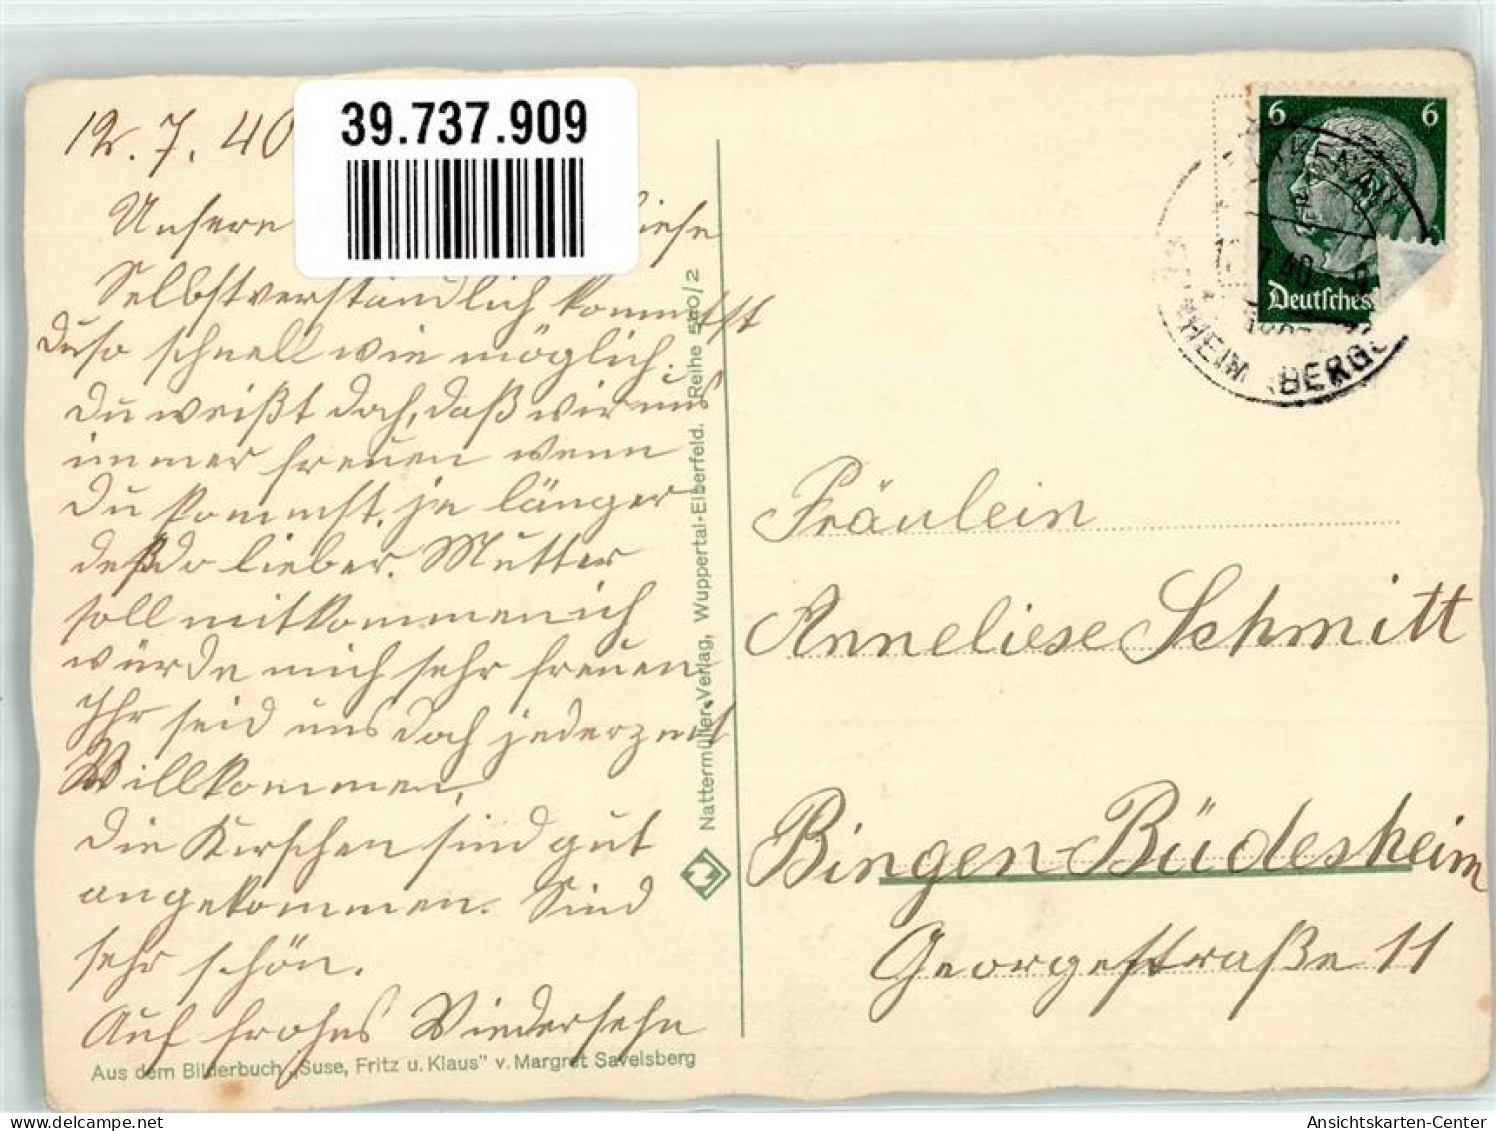 12. 7. 40
39.737.909
Unsere
Selbstverständlich kommst
Du so schnell wie möglich.
Du weißt doch, daß wir uns
immer freuen wenn
Du kommst, je länger
desdo lieber. Mutter
soll mitkommen ich
würde mich sehr freuen
Ihr seid uns doch jederzeit
Willkommen.
Die Kirschen sind gut
angekommen. Sind
sehr schön.
Auf frohes Wiedersehn
Aus dem Bilderbuch „Suse, Fritz u. Klaus" v. Margret Savelsberg
Nattermüller-Verlag, Wuppertal-Elberfeld. Reihe 500/2
6 6
Deutsches
HEIM BERGS
Fräulein
Anneliese Schmitt
Bingen-Büdesheim
Georgestraße 11
Ansichtskarten-Center